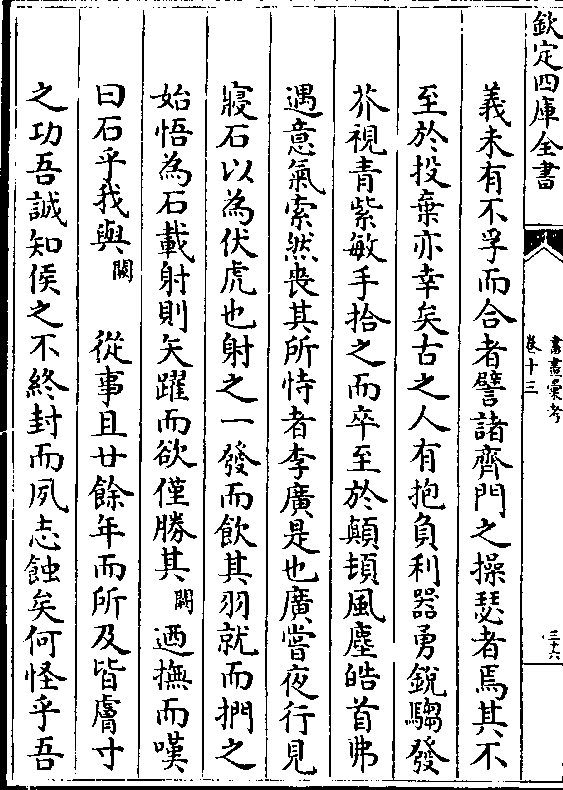 欽定四庫全書
書畫彚考
卷十三
三十六
義未有不孚而合者譬諸齊門之操瑟者焉其不
至於投棄亦幸矣古之人有抱負利器勇銳騶發
芥視青紫敏手拾之而卒至於顛頓風塵皓首弗
遇意氣索然喪其所恃者李廣是也廣嘗夜行見
寢石以為伏虎也射之一發而飲其羽就而捫之
始悟為石載射則矢躍而欲僅勝其闕迺撫而嘆
曰石乎我與闕從事且廿餘年而所及皆膚寸
之功吾誠知侯之不終封而夙志蝕矣何怪乎吾